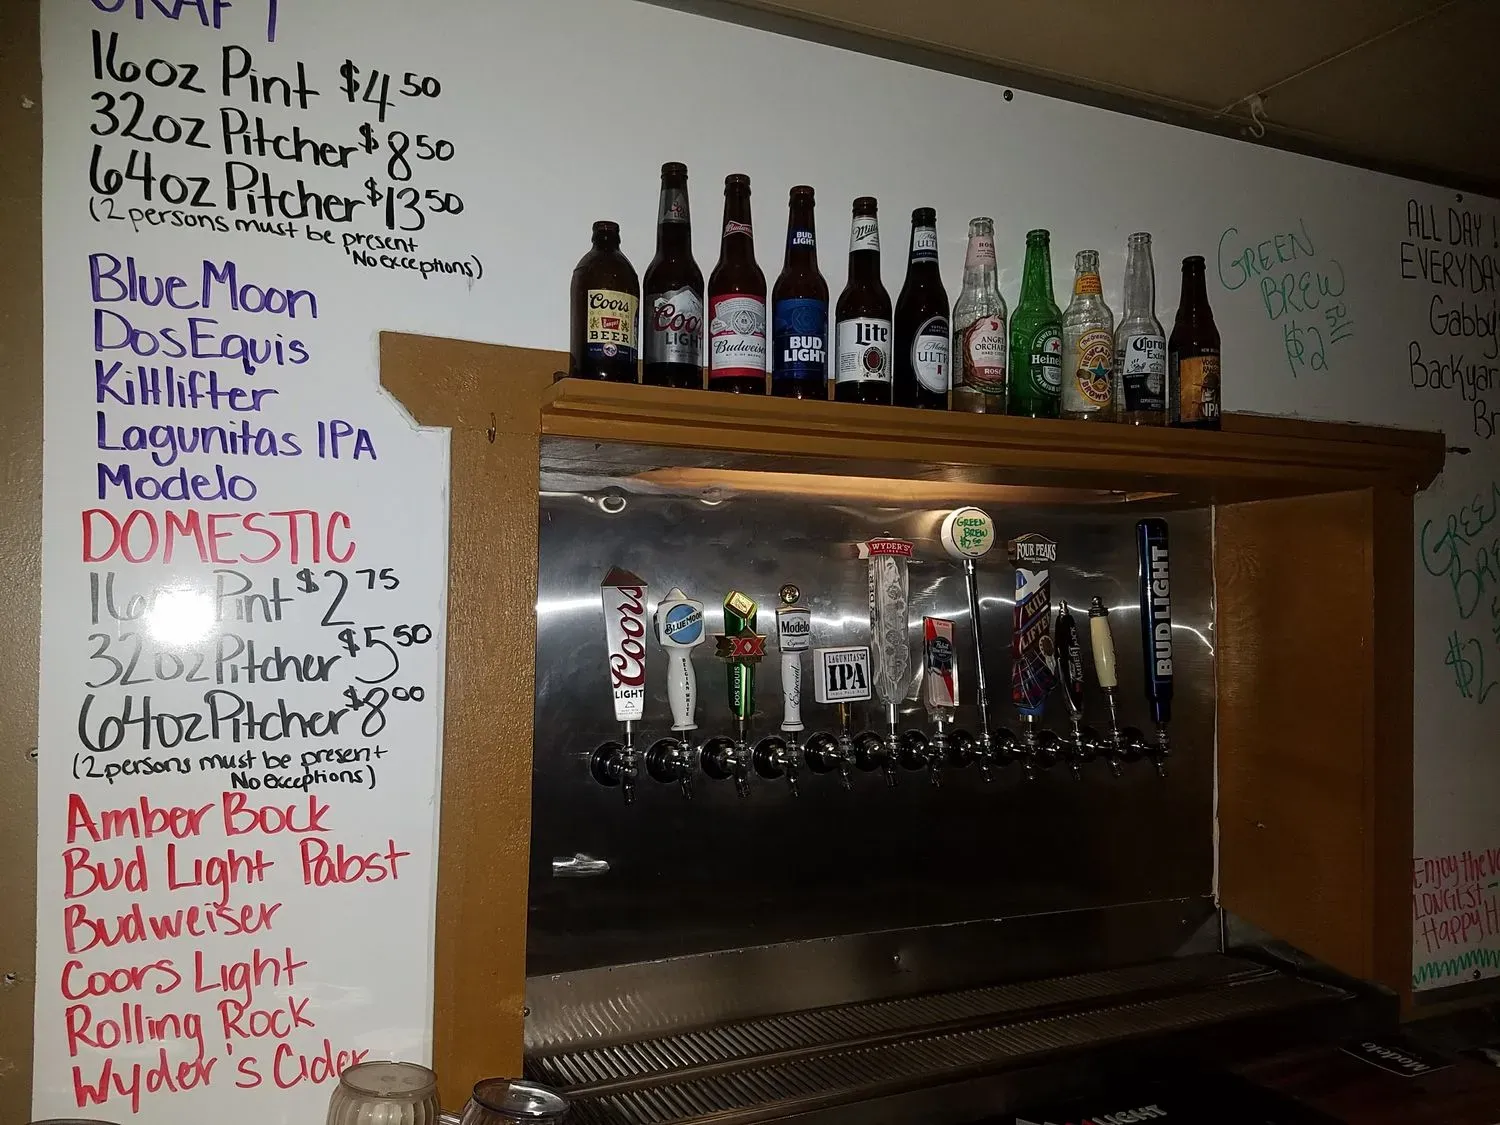 CRAFT
16oz Pint $4.50
32oz Pitcher $8.50
64oz Pitcher $13.50
(2 persons must be present
No exceptions)
Blue Moon
Dos Equis
Kiltlifter
Lagunitas IPA
Modelo
DOMESTIC
16oz Pint $2.75
32oz Pitcher $5.50
64oz Pitcher $8.00
(2 persons must be present
No exceptions)
Amber Bock
Bud Light Pabst
Budweiser
Coors Light
Rolling Rock
Wyder's Cider
Coors
BEER
Coors
LIGHT
Budweiser
BUD
LIGHT
BUD
LIGHT
Miller
Lite
ULTRA
ROSÉ
ANGRY
ORCHARD
ROSÉ
Heineken
NEWCASTLE
BROWN
Corona
Extra
VOODOO
IPA
GREEN
BREW
$2
Coors
LIGHT
BLUE MOON
BELGIAN WHITE
XX
DOS EQUIS
Modelo
Especial
Especial
LAGUNITAS
IPA
INDIA PALE ALE
WYDER'S
CIDER
Pabst
GREEN
BREW
$2.50
FOUR PEAKS
KILT
LIFTER
AMBER
BUD LIGHT
ALL DAY!
EVERYDAY
Gabby's
Backyard
GREEN
BREW
$2
Enjoy the
LONGEST
Happy H
Modelo
LIGHT